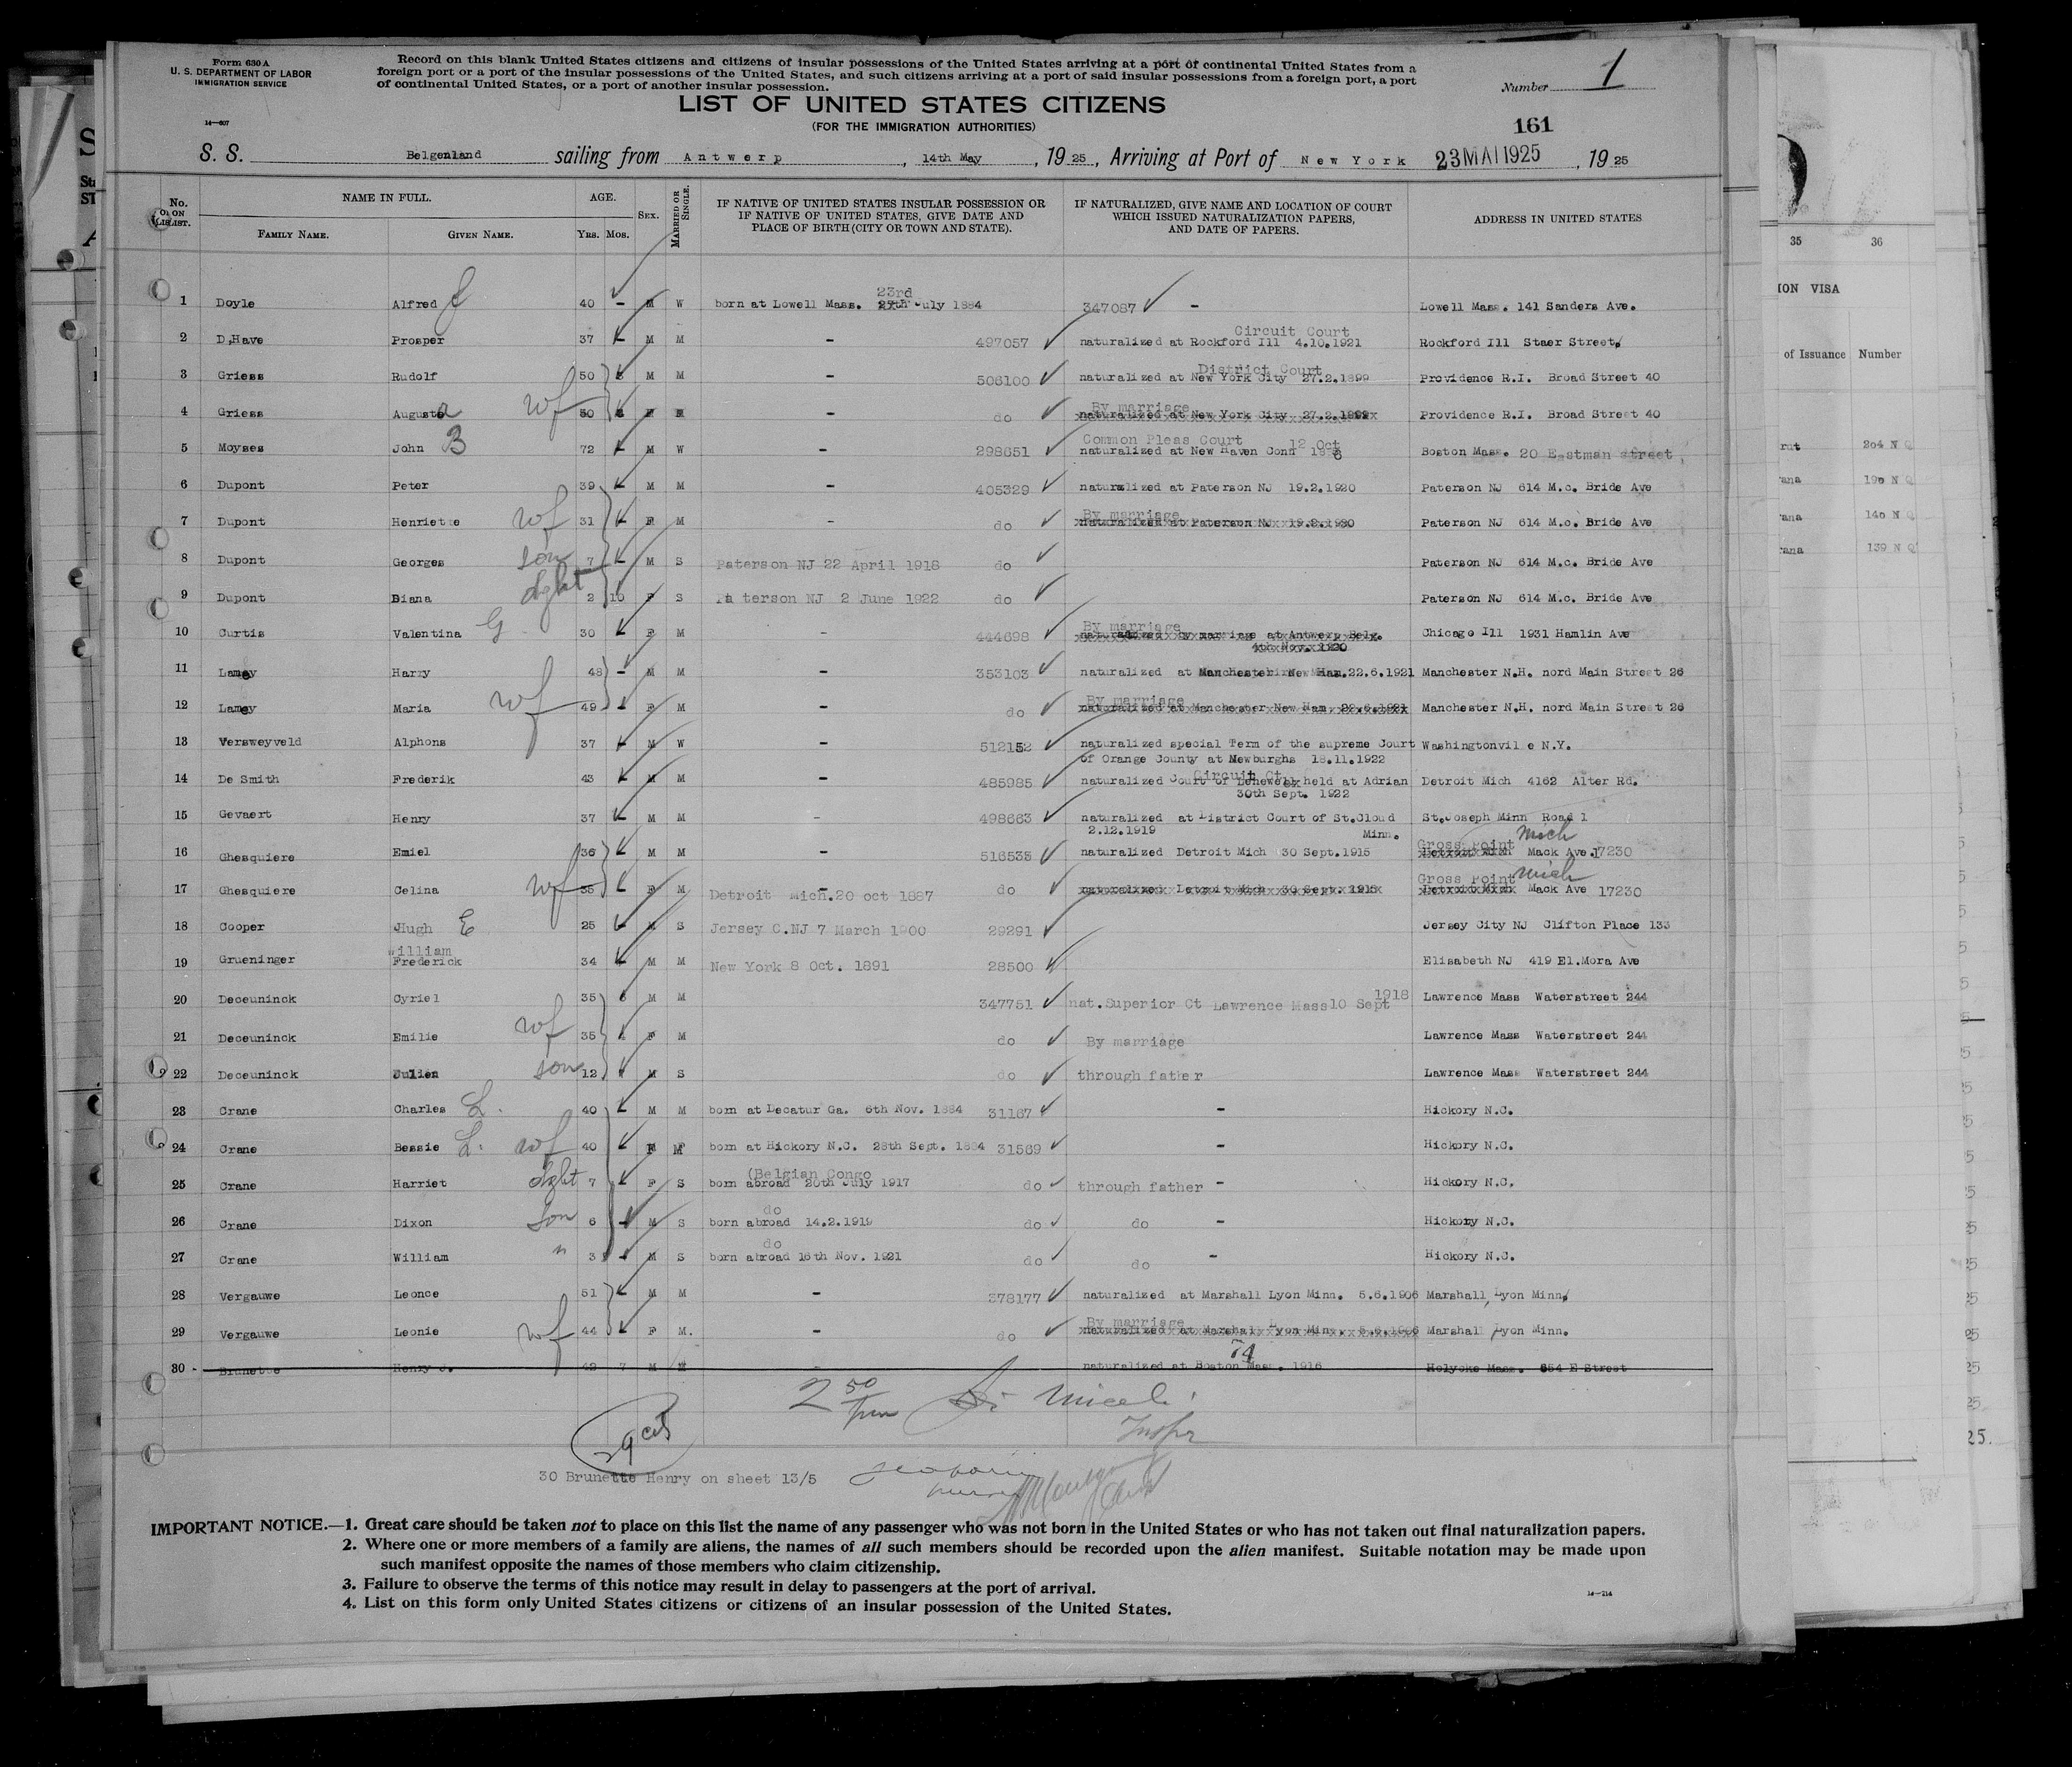 Form 630 A
U. S. DEPARTMENT OF LABOR
IMMIGRATION SERVICE
14—607
Record on this blank United States citizens and citizens of insular possessions of the United States arriving at a port of continental United States from a
foreign port or a port of the insular possessions of the United States, and such citizens arriving at a port of said insular possessions from a foreign port, a port
of continental United States, or a port of another insular possession.
Number 1
LIST OF UNITED STATES CITIZENS
(FOR THE IMMIGRATION AUTHORITIES)
161
S. S. Belgenland sailing from Antwerp, 14th May, 1925, Arriving at Port of New York 23 MAI 1925, 1925
No. ON LIST. NAME IN FULL. AGE. SEX. MARRIED OR SINGLE. IF NATIVE OF UNITED STATES INSULAR POSSESSION OR IF NATIVE OF UNITED STATES, GIVE DATE AND PLACE OF BIRTH (CITY OR TOWN AND STATE). IF NATURALIZED, GIVE NAME AND LOCATION OF COURT WHICH ISSUED NATURALIZATION PAPERS, AND DATE OF PAPERS. ADDRESS IN UNITED STATES
FAMILY NAME. GIVEN NAME. YRS. MOS.
1 Doyle Alfred 40 – M W born at Lowell Mass. 23rd July 1884 347087 – Lowell Mass. 141 Sanders Ave.
2 D,Have Prosper 37 M M – 497057 naturalized at Rockford Ill Circuit Court 4.10.1921 Rockford Ill Staer Street
3 Griess Rudolf 50 M M – 506100 naturalized at New York City District Court 27.2.1899 Providence R.I. Broad Street 40
4 Griess Augusta wf 50 – do By marriage naturalized at New York City 27.2.1899 Providence R.I. Broad Street 40
5 Moyses John B 72 M W – 298651 Common Pleas Court naturalized at New Haven Conn 12 Oct Boston Mass. 20 Eastman street
6 Dupont Peter 39 M M – 405329 naturalized at Paterson NJ 19.2.1920 Paterson NJ 614 M.c. Bride Ave
7 Dupont Henriette wf 31 F M – do By marriage naturalized at Paterson NJ 19.2.1920 Paterson NJ 614 M.c. Bride Ave
8 Dupont Georges son 7 M S Paterson NJ 22 April 1918 do Paterson NJ 614 M.c. Bride Ave
9 Dupont Diana dght 2 10 F S Pa terson NJ 2 June 1922 do Paterson NJ 614 M.c. Bride Ave
10 Curtis Valentina G. 30 F M – 444698 By marriage naturalized by marriage at Antwerp Belg. Nov. 1920 Chicago Ill 1931 Hamlin Ave
11 Lamey Harry 48 – M M – 353103 naturalized at Manchester New Ham. 22.6.1921 Manchester N.H. nord Main Street 26
12 Lamey Maria wf 49 F M – do By marriage naturalized at Manchester New Ham. 22.6.1921 Manchester N.H. nord Main Street 26
13 Versweyveld Alphons 37 M W – 512152 naturalized special Term of the supreme Court Washingtonvil e N.Y.
of Orange County at Newburghs 18.11.1922
14 De Smith Frederik 43 M M – 485985 naturalized Circuit Ct. Court of held at Adrian Detroit Mich 4162 Alter Rd.
30th Sept. 1922
15 Gevaert Henry 37 M M – 498663 naturalized at District Court of St.Cloud St.Joseph Minn Road 1
2.12.1919 Minn.
16 Ghesquiere Emiel 36 M M – 516535 naturalized Detroit Mich 30 Sept.1915 Gross Point Mich Detroit Mich Mack Ave. 17230
17 Ghesquiere Celina wf 35 F M Detroit Mich. 20 oct 1887 do naturalized Detroit Mich 30 Sept. 1915 Gross Point Mich Detroit Mich Mack Ave 17230
18 Cooper Hugh E 25 M S Jersey C.NJ 7 March 1900 29291 Jersey City NJ Clifton Place 133
19 Grueninger William Frederick 34 M M New York 8 Oct. 1891 28500 Elisabeth NJ 419 El.Mora Ave
20 Deceuninck Cyriel 35 6 M M 347751 nat.Superior Ct Lawrence Mass10 Sept 1918 Lawrence Mass Waterstreet 244
21 Deceuninck Emilie wf 35 F M do By marriage Lawrence Mass Waterstreet 244
22 Deceuninck Julien son 12 M S do through father Lawrence Mass Waterstreet 244
23 Crane Charles L. 40 M M born at Decatur Ga. 6th Nov. 1884 31167 – Hickory N.C.
24 Crane Bessie L. wf 40 F M born at Hickory N.C. 28th Sept. 1884 31569 – Hickory N.C.
25 Crane Harriet dght 7 F S born abroad (Belgian Congo 20th July 1917 do through father – Hickory N.C.
26 Crane Dixon son 6 M S born abroad do 14.2.1919 do do – Hickory N.C.
27 Crane William " 3 M S born abroad do 16th Nov. 1921 do do – Hickory N.C.
28 Vergauwe Leonce 51 M M – 378177 naturalized at Marshall Lyon Minn. 5.6.1906 Marshall, Lyon Minn.
29 Vergauwe Leonie wf 44 F M. – do By marriage naturalized at Marshall Lyon Minn. 5.6.1906 Marshall Lyon Minn.
30 - Brunette Henry J. 42 7 M M – naturalized at Boston Mass. 1916 Holyoke Mass. 654 E Street
2 50
29 cit
30 Brunette Henry on sheet 13/5
IMPORTANT NOTICE.—1. Great care should be taken not to place on this list the name of any passenger who was not born in the United States or who has not taken out final naturalization papers.
2. Where one or more members of a family are aliens, the names of all such members should be recorded upon the alien manifest. Suitable notation may be made upon
such manifest opposite the names of those members who claim citizenship.
3. Failure to observe the terms of this notice may result in delay to passengers at the port of arrival.
4. List on this form only United States citizens or citizens of an insular possession of the United States.
14—214
35 36
ION VISA
of Issuance Number
204 N Q
190 N Q
140 N Q
139 N Q
25.